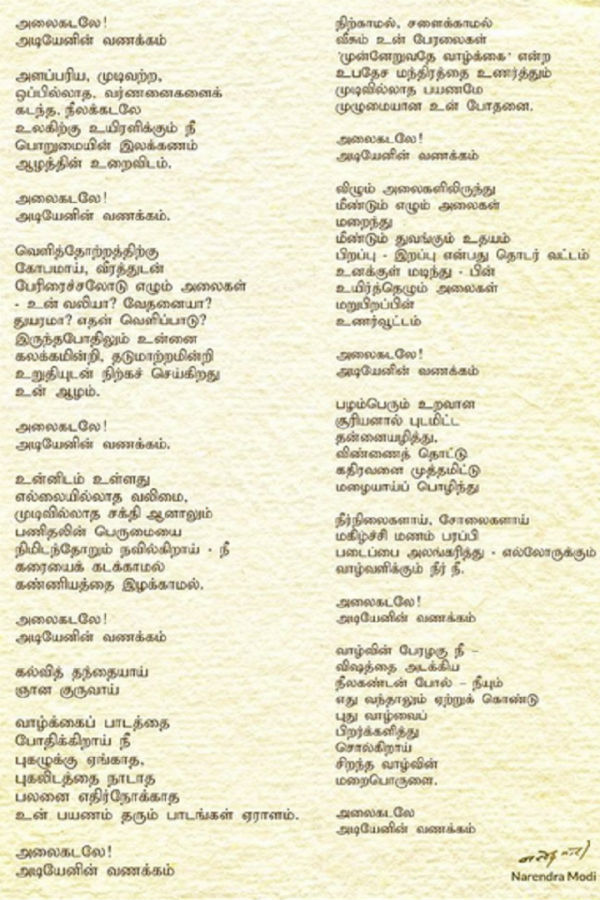 அலைகடலே!
அடியேனின் வணக்கம்
அளப்பரிய, முடிவற்ற,
ஒப்பில்லாத, வர்ணனைகளைக்
கடந்த, நீலக்கடலே
உலகிற்கு உயிரளிக்கும் நீ
பொறுமையின் இலக்கணம்
ஆழத்தின் உறைவிடம்.
அலைகடலே!
அடியேனின் வணக்கம்.
வெளித்தோற்றத்திற்கு
கோபமாய், வீரத்துடன்
பேரிரைச்சலோடு எழும் அலைகள்
- உன் வலியா? வேதனையா?
துயரமா? எதன் வெளிப்பாடு?
இருந்தபோதிலும் உன்னை
கலக்கமின்றி, தடுமாற்றமின்றி
உறுதியுடன் நிற்கச் செய்கிறது
உன் ஆழம்.
அலைகடலே!
அடியேனின் வணக்கம்.
உன்னிடம் உள்ளது
எல்லையில்லாத வலிமை,
முடிவில்லாத சக்தி ஆனாலும்
பணிதலின் பெருமையை
நிமிடந்தோறும் நவில்கிறாய் - நீ
கரையைக் கடக்காமல்
கண்ணியத்தை இழக்காமல்.
அலைகடலே!
அடியேனின் வணக்கம்
கல்வித் தந்தையாய்
ஞான குருவாய்
வாழ்க்கைப் பாடத்தை
போதிக்கிறாய் நீ
புகழுக்கு ஏங்காத,
புகலிடத்தை நாடாத
பலனை எதிர்நோக்காத
உன் பயணம் தரும் பாடங்கள் ஏராளம்.
அலைகடலே!
அடியேனின் வணக்கம்
நிற்காமல், சளைக்காமல்
வீசும் உன் பேரலைகள்
'முன்னேறுவதே வாழ்க்கை' என்ற
உபதேச மந்திரத்தை உணர்த்தும்
முடிவில்லாத பயணமே
முழுமையான உன் போதனை.
அலைகடலே!
அடியேனின் வணக்கம்
விழும் அலைகளிலிருந்து
மீண்டும் எழும் அலைகள்
மறைந்து
மீண்டும் துவங்கும் உதயம்
பிறப்பு - இறப்பு என்பது தொடர் வட்டம்
உனக்குள் மடிந்து - பின்
உயிர்த்தெழும் அலைகள்
மறுபிறப்பின்
உணர்வூட்டம்
அலைகடலே!
அடியேனின் வணக்கம்
பழம்பெரும் உறவான
சூரியனால் புடமிட்ட
தன்னையழித்து,
விண்ணைத் தொட்டு
கதிரவனை முத்தமிட்டு
மழையாய்ப் பொழிந்து
நீர்நிலைகளாய், சோலைகளாய்
மகிழ்ச்சி மணம் பரப்பி
படைப்பை அலங்கரித்து - எல்லோருக்கும்
வாழ்வளிக்கும் நீர் நீ.
அலைகடலே!
அடியேனின் வணக்கம்
வாழ்வின் பேரழகு நீ –
விஷத்தை அடக்கிய
நீலகண்டன் போல் – நீயும்
எது வந்தாலும் ஏற்றுக் கொண்டு
புது வாழ்வைப்
பிறர்க்களித்து
சொல்கிறாய்
சிறந்த வாழ்வின்
மறைபொருளை.
அலைகடலே
அடியேனின் வணக்கம்
Narendra Modi